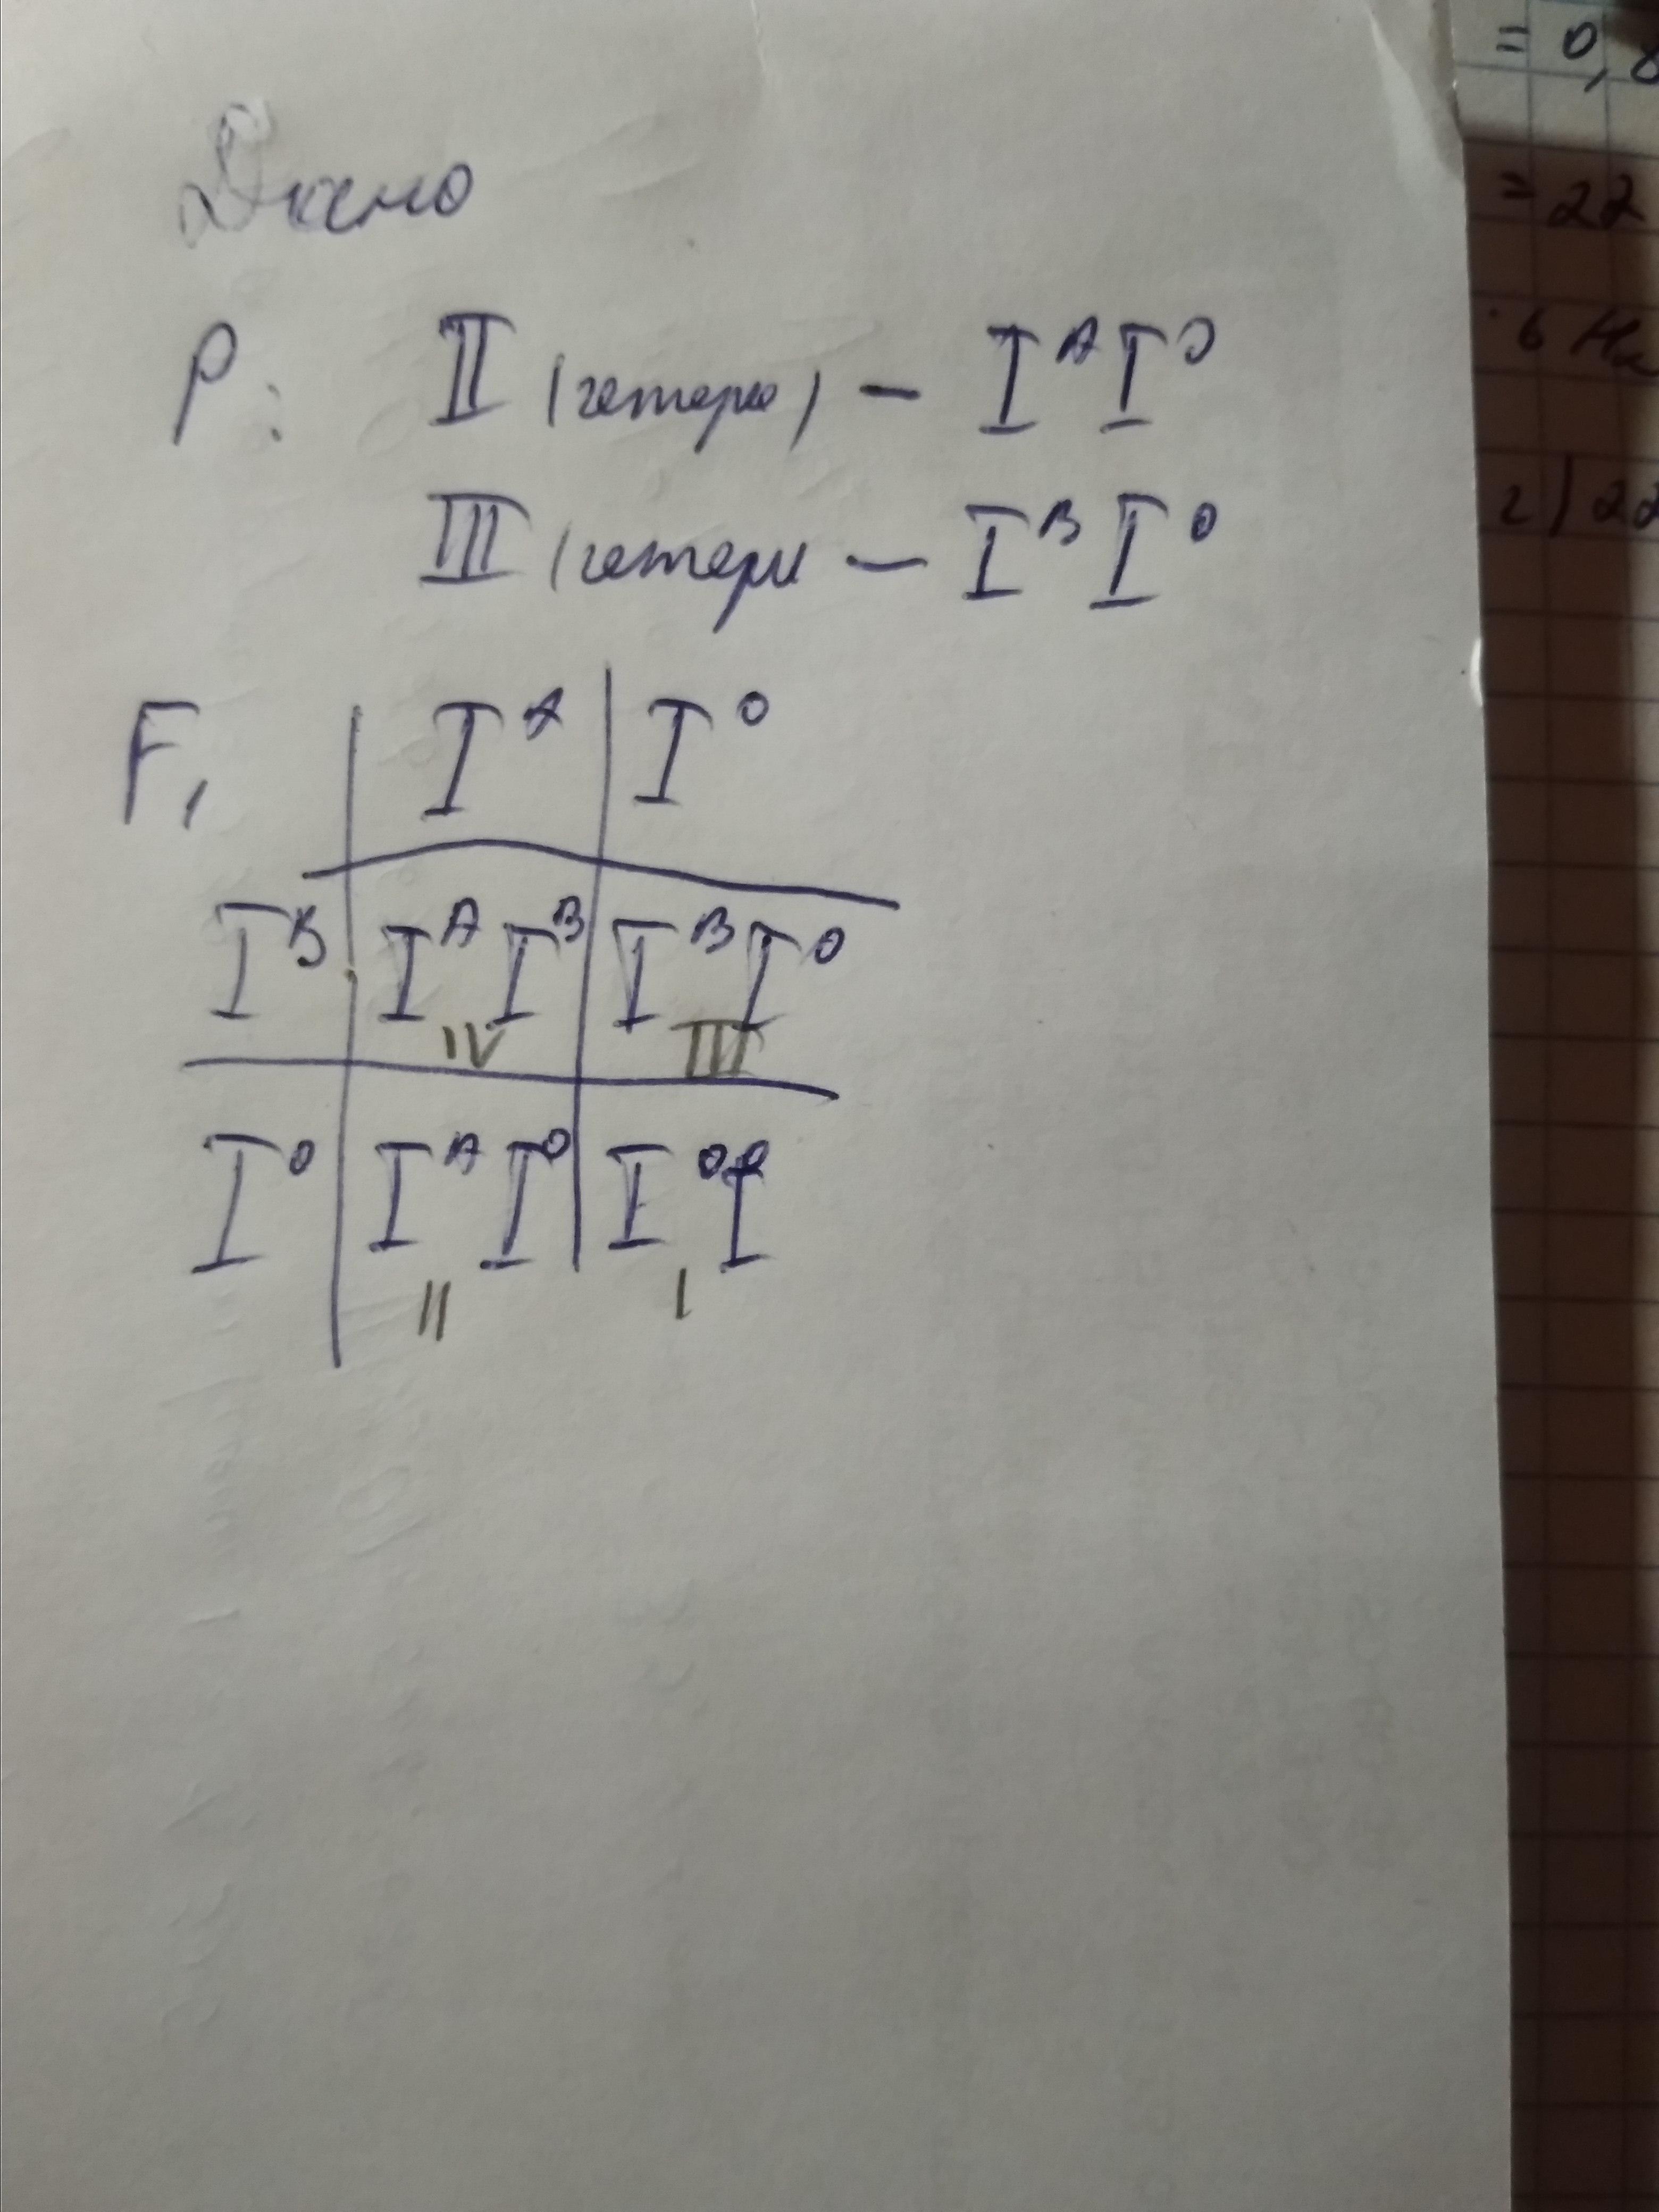 Дано
P: II (гетеро) – I^A I^O
III (гетеро – I^B I^O
F₁ I^A I^O
I^B I^A I^B I^B I^O
IV III
I^O I^A I^O I^O I^O
II I
= 0,8
= 22
2) 22